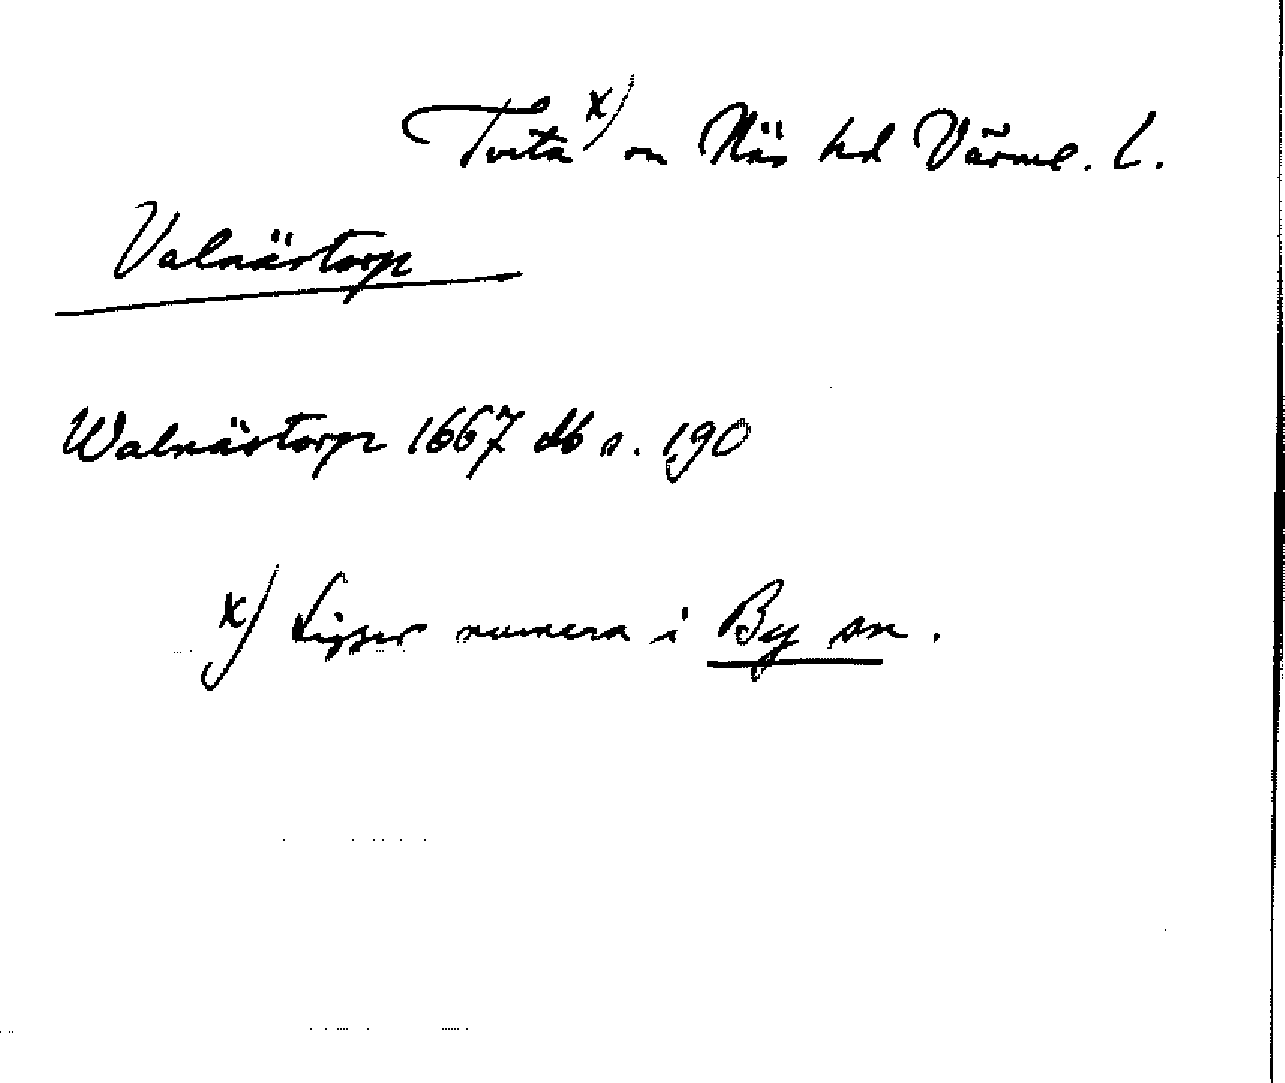 Tveta x) sn Näs hd Värml. L.
Valnästorp
Walnästorp 1667 db s. 190
x) Ligger numera i By sn.